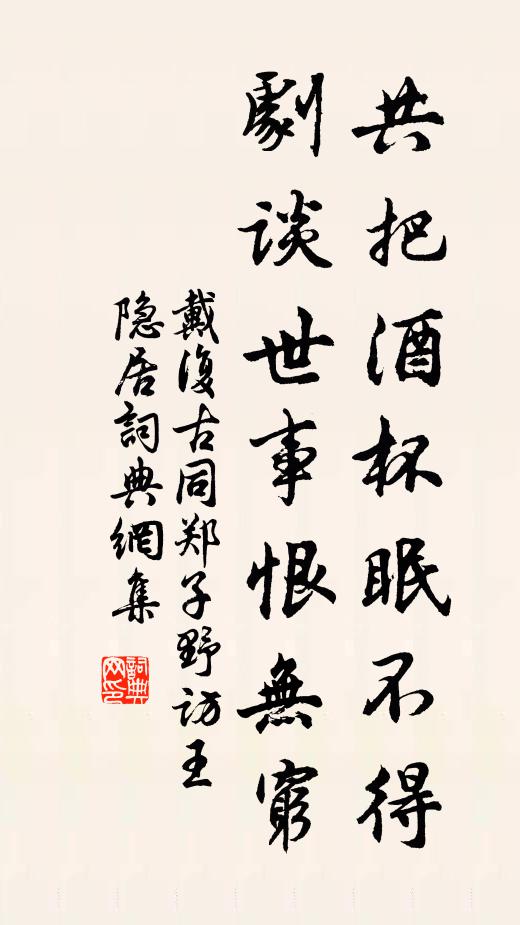 共把酒杯眠不得
劇談世事恨無窮
戴復古同郑子野访王
隐居詞典網集
詞典网印